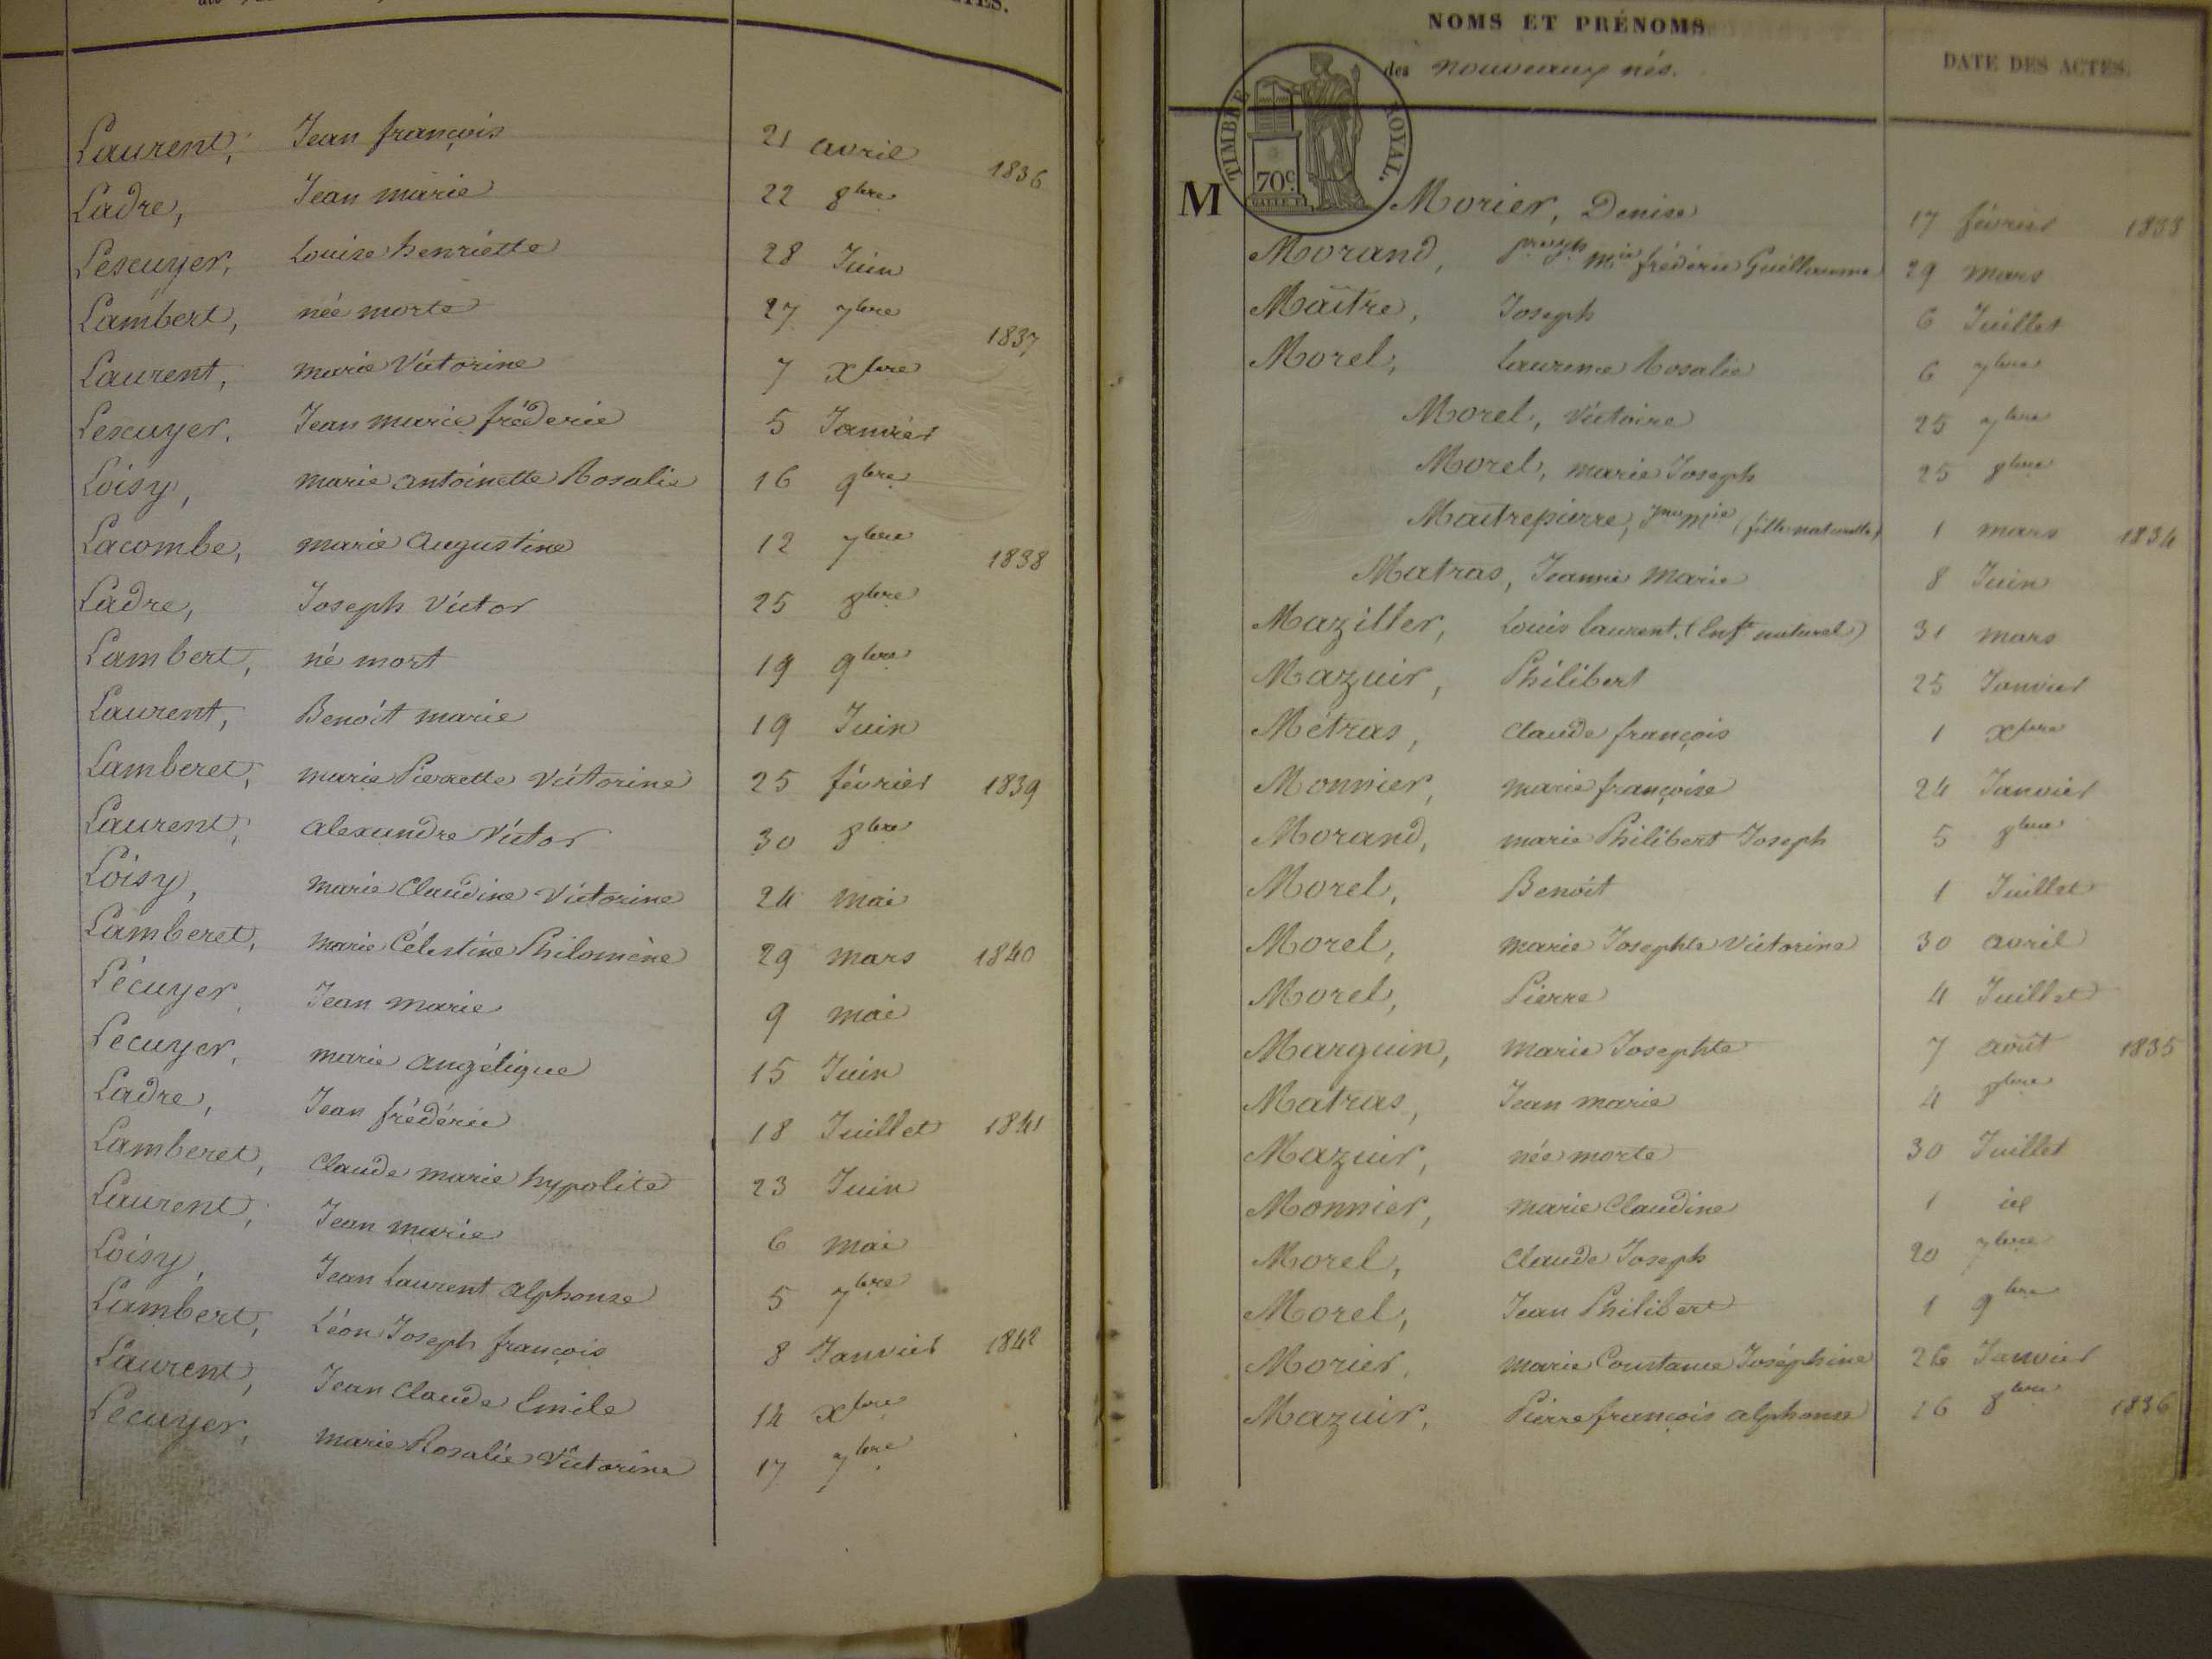 ACTES.
Laurent, Jean françois 21 avril 1836
Ladre, Jean marie 22 8bre
Lescuyer, Louise henriette 28 Juin
Lambert, née morte 27 7bre
Laurent, marie Victorine 7 Xbre 1837
Lescuyer, Jean marie fréderic 5 Janvier
Loisy, marie antoinette Rosalie 16 9bre
Lacombe, marie augustine 12 7bre 1838
Ladre, Joseph Victor 25 8bre
Lambert, né mort 19 9bre
Laurent, Benoit marie 19 Juin
Lamberet, marie Pierrette Victorine 25 février 1839
Laurent, alexandre Victor 30 8bre
Loisy, marie Claudine Victorine 24 mai
Lamberet, marie Célestine Philomène 29 mars 1840
Lécuyer, Jean marie 9 mai
Lecuyer, marie angélique 15 Juin
Ladre, Jean frédéric 18 Juillet 1841
Lamberet, Claude marie hypolite 23 Juin
Laurent, Jean marie 6 mai
Loisy, Jean Laurent alphonse 5 7bre
Lambert, Léon Joseph françois 8 Janvier 1842
Laurent, Jean Claude Emile 14 Xbre
Lécuyer, marie Rosalie Victorine 17 7bre
NOMS ET PRÉNOMS
des nouveaux nés.
DATE DES ACTES.
TIMBRE ROYAL.
70c.
M
Morier, Denise 17 février 1833
Morand, frédéric Guillaume 29 mars
Maitre, Joseph 6 Juillet
Morel, Laurence Rosalie 6 7bre
Morel, Victoire 25 7bre
Morel, marie Joseph 25 8bre
Maitrepierre, Jne Mie (fille naturelle) 1 mars 1834
Matras, Jeanne Marie 8 Juin
Maziller, Louis Laurent (Enft naturel) 31 mars
Mazuir, Philibert 25 Janvier
Métras, Claude françois 1 Xbre
Monnier, marie françoise 24 Janvier
Morand, marie Philibert Joseph 5 8bre
Morel, Benoit 1 Juillet
Morel, marie Josephte Victorine 30 avril
Morel, Pierre 4 Juillet
Marguin, marie Josephte 7 août 1835
Matras, Jean marie 4 8bre
Mazuir, née morte 30 Juillet
Monnier, marie Claudine 1 id
Morel, Claude Joseph 20 7bre
Morel, Jean Philibert 1 9bre
Morier, marie Constance Joséphine 26 Janvier
Mazuir, Pierre françois alphonse 16 8bre 1836